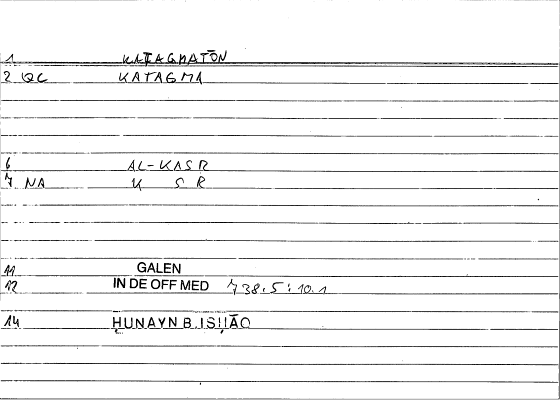 1 KATAGMATŌN
2 QC KATAGMA
6 AL-KASR
7 NA K S R
11 GALEN
12 IN DE OFF MED 738.5:10.1
14 ḤUNAYN B. ISḤĀQ